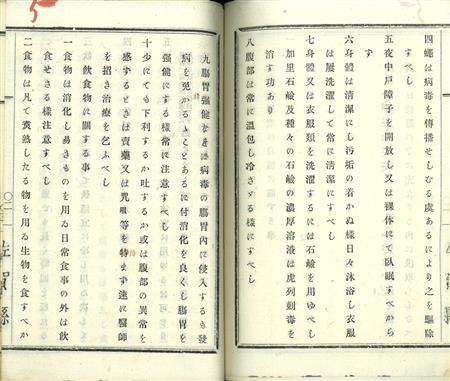 四蠅は病毒を傳播せしむる虞あるにより之を驅除
すべし
五夜中戸障子を開放し又は裸体にて臥眠すべから
ず
六身體は清潔にし汚垢の着かぬ樣日々沐浴し衣服
は屡洗濯して常に清潔にすべし
七身體又は衣服類を洗濯するには石鹼を用ゆべし
加里石鹼及種々の石鹼の濃厚溶液は虎列剌毒を
消す功あり
八腹部は常に温包し冷さゞる樣にすべし
九腸胃強健なるときは病毒の腸胃內に侵入するも發
病を免かるゝことあるに付消化を良くし腸胃を
強健にする樣常に注意すべし
十少にても下利するか吐するか或は腹部の異常を
感するときは賣藥又は咒咀等を特ます速に醫師
を招き治療を乞ふべし
三飮食物に關する事
一食物は消化し易きものを用ゐ日常食事の外は飮
食せざる樣注意すべし
二食物は凡て煑熟したる物を用ゐ生物を食すべか
佐賀縣